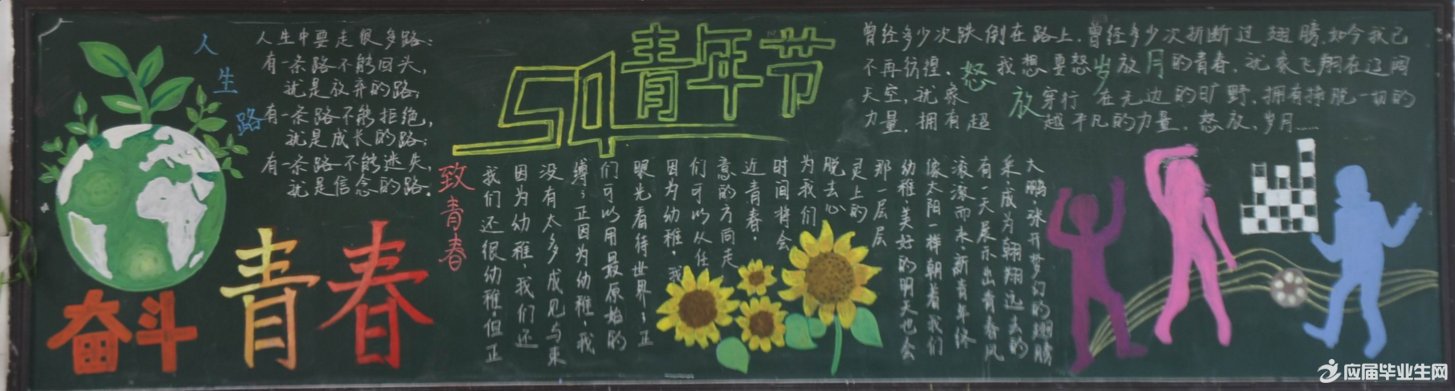 人生路
人生中要走很多路:
有一条路不能回头,
就是放弃的路;
有一条路不能拒绝,
就是成长的路;
有一条路不能迷失,
就是信念的路。
54青年节
曾经多少次跌倒在路上,曾经多少次折断过翅膀,如今我已
不再彷徨,我想要怒放的青春,就象飞翔在辽阔
天空,就象穿行在无边的旷野,拥有挣脱一切的
力量,拥有超越平凡的力量。怒放,岁月……
怒放岁月
奋斗
青春
致青春
我们还很幼稚,但正
因为幼稚,我们还
没有太多成见与束
缚;正因为幼稚,我
们可以用最原始的
眼光看待世界;正
因为幼稚,我
们可以从任
意的方向走
近青春,
时间将会
为我们
脱去心
灵上的
那一层层
幼稚,美好的明天也会
像太阳一样朝着我们
滚滚而来,新青年终
有一天展示出青春风
采,成为翱翔远去的
大鹏,张开梦幻的翅膀
应届毕业生网